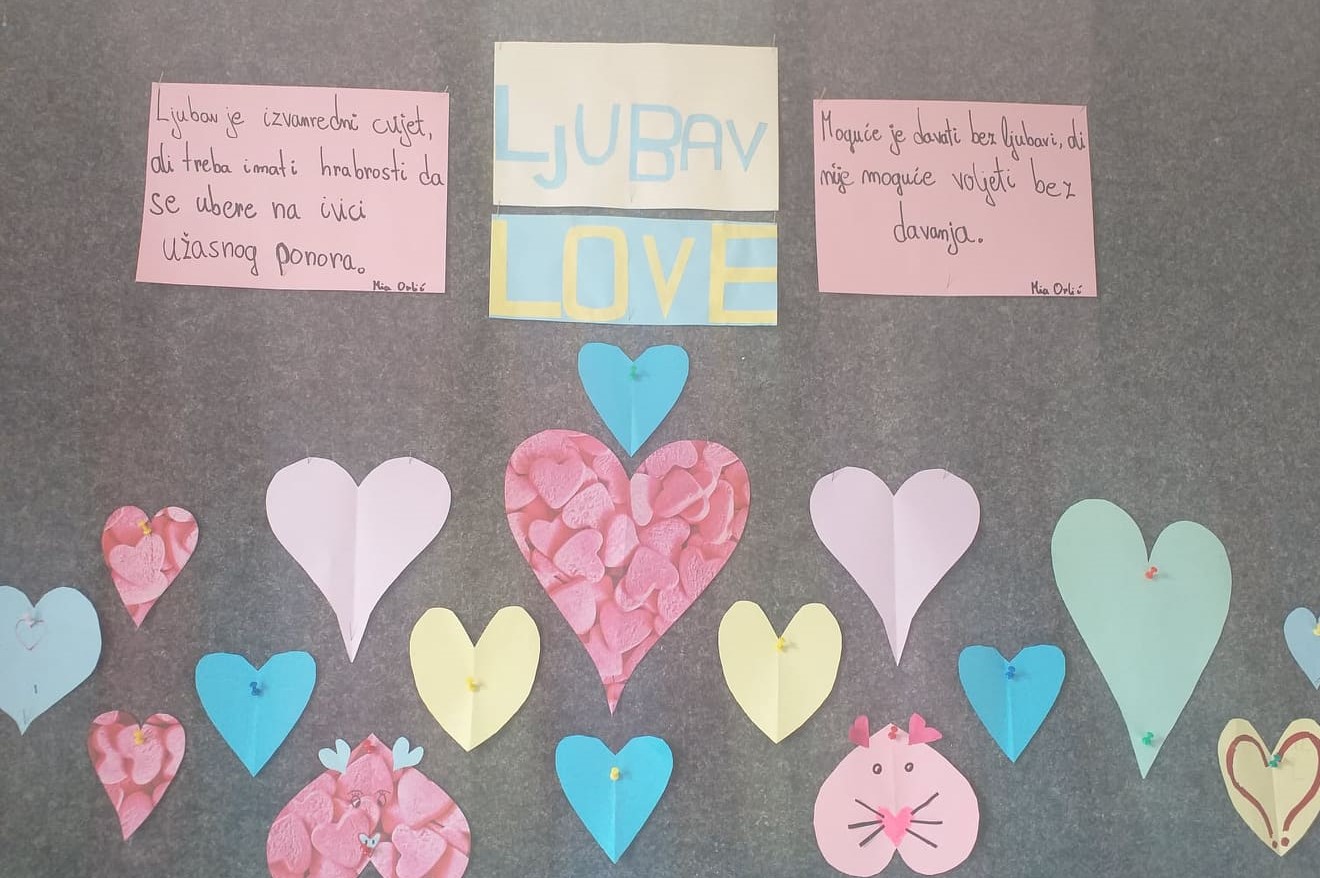 Ljubav je izvanredni cvijet,
ali treba imati hrabrosti da
se ubere na ivici
užasnog ponora.
Mia Orlić
LJUBAV
LOVE
Moguće je davati bez ljubavi, ali
nije moguće voljeti bez
davanja.
Mia Orlić